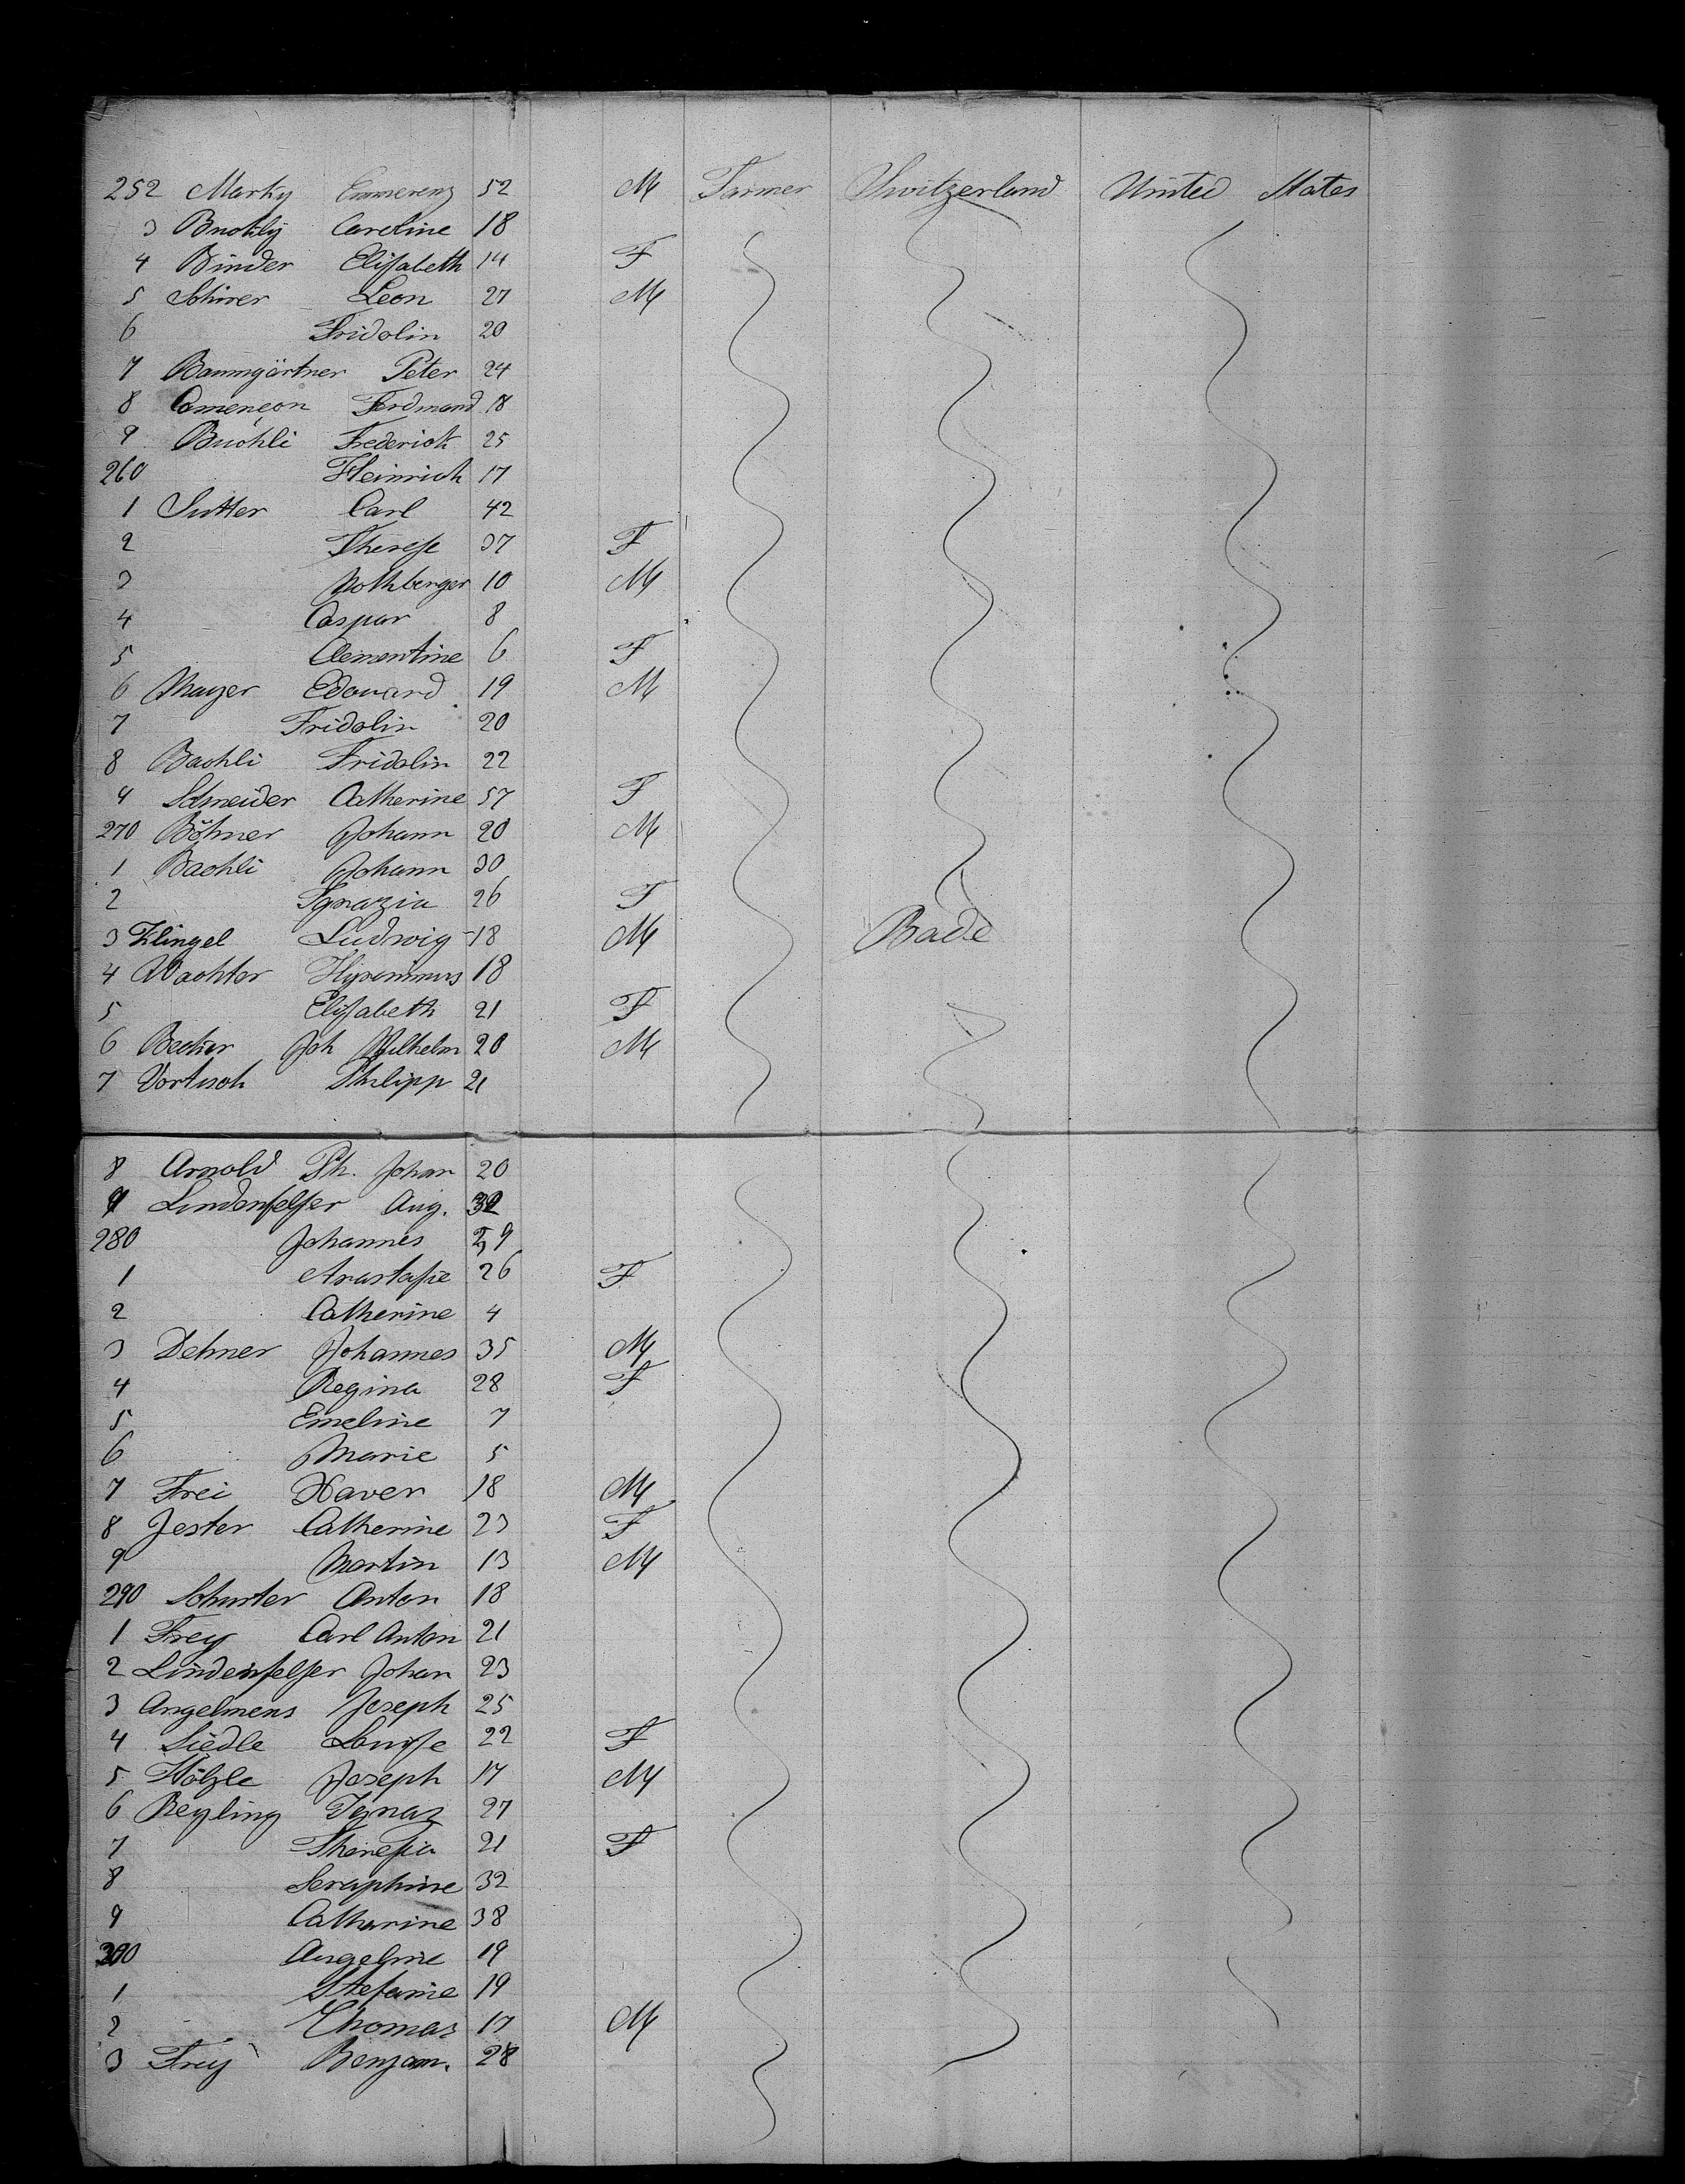 252 Marky Emmerenz 52 M Farmer Switzerland United States
3 Buchly Caroline 18
4 Binder Elisabeth 14 F
5 Schirer Leon 27 M
6 Fridolin 20
7 Baumgärtner Peter 24
8 Començon Ferdinand 18
9 Buchli Frederick 25
260 Heinrich 17
1 Sutter Carl 42
2 Therese 37 F
3 Nothberger 10 M
4 Caspar 8
5 Clementine 6 F
6 Mayer Edouard 19 M
7 Fridolin 20
8 Bachli Fridolin 22
9 Schneider Catherine 57 F
270 Böhner Johann 20 M
1 Bachli Johann 30
2 Ignazia 26 F
3 Klingel Ludwig 18 M Bade
4 Wachter Hyronimus 18
5 Elisabeth 21 F
6 Becker Joh Wilhelm 20 M
7 Vortisch Philipp 21
8 Arnold Ph. Johan 20
9 Lindenfelser Aug. 32
280 Johannes 29
1 Anastasie 26 F
2 Catherine 4
3 Dehner Johannes 35 M
4 Regina 28 F
5 Emeline 7
6 Marie 5
7 Frei Xaver 18 M
8 Jester Catherine 23 F
9 Martin 13 M
290 Schuster Anton 18
1 Frey Carl Anton 21
2 Lindenfelser Johan 23
3 Angelmens Joseph 25
4 Siedle Louise 22 F
5 Hölzle Joseph 17 M
6 Beyling Ignaz 27
7 Theresia 21 F
8 Seraphine 32
9 Catharine 38
300 Angeline 19
1 Stefanie 19
2 Thomas 17 M
3 Frey Benjam. 28